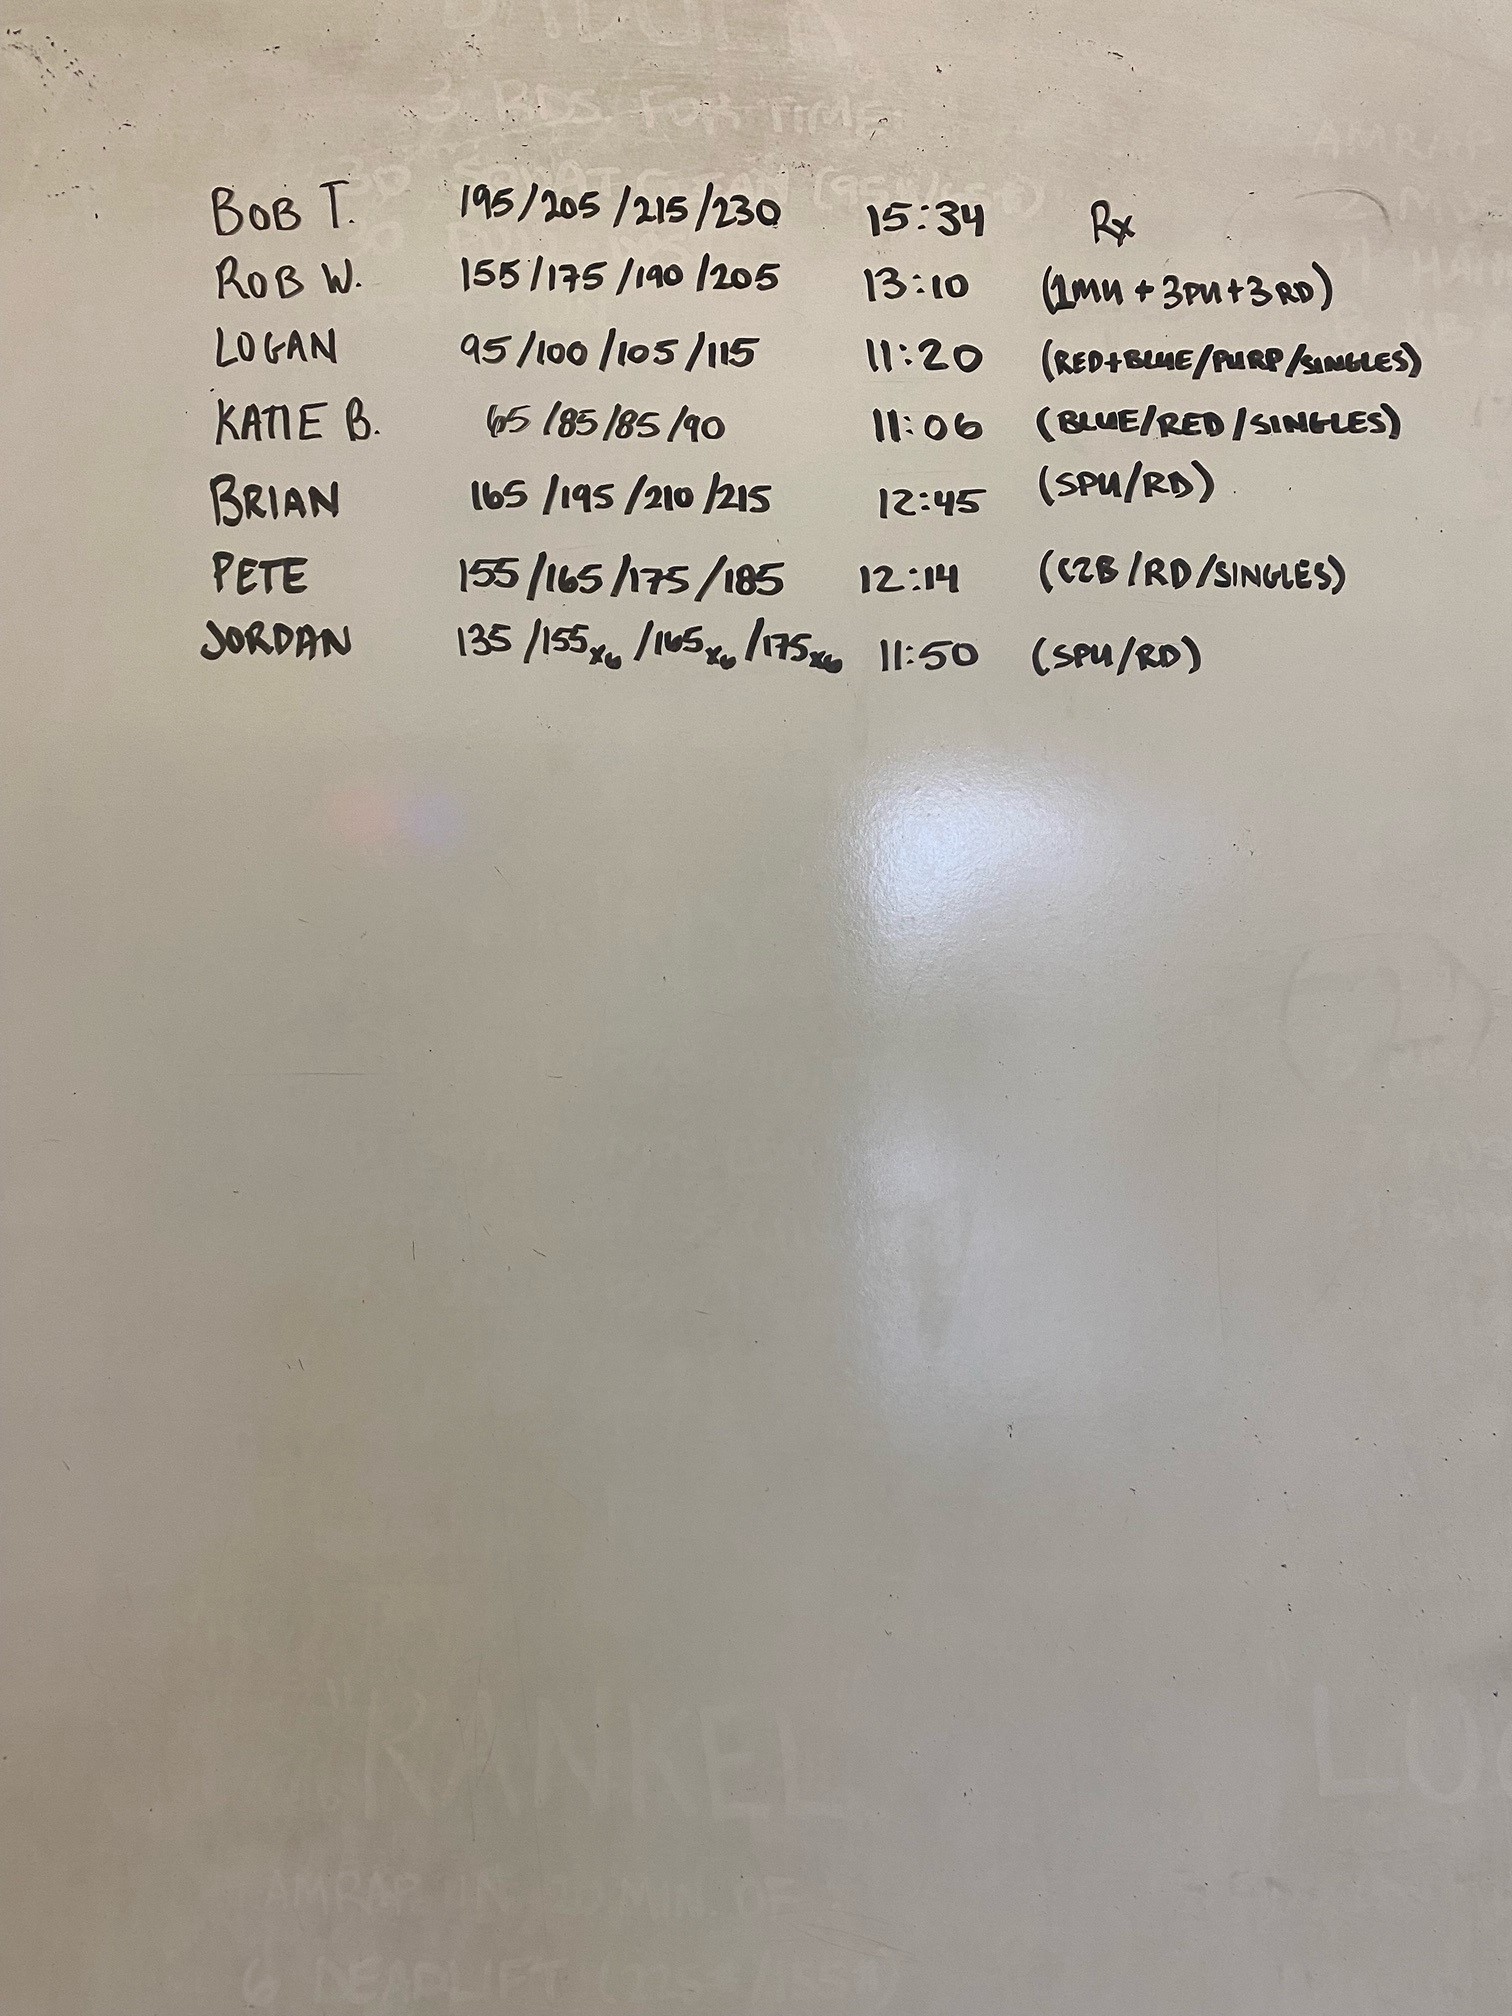 3 RDS. FOR TIME
BOB T. 195/205/215/230 15:34 Rx
ROB W. 155/175/190/205 13:10 (1MU + 3PU + 3RD)
LOGAN 95/100/105/115 11:20 (RED+BLUE/PURP/SINGLES)
KATIE B. 65/85/85/90 11:06 (BLUE/RED/SINGLES)
BRIAN 165/195/210/215 12:45 (SPU/RD)
PETE 155/165/175/185 12:14 (C2B/RD/SINGLES)
JORDAN 135/155x6/165x6/175x6 11:50 (SPU/RD)
"RANKEL
AMRAP 20 MIN. OF
6 DEADLIFT